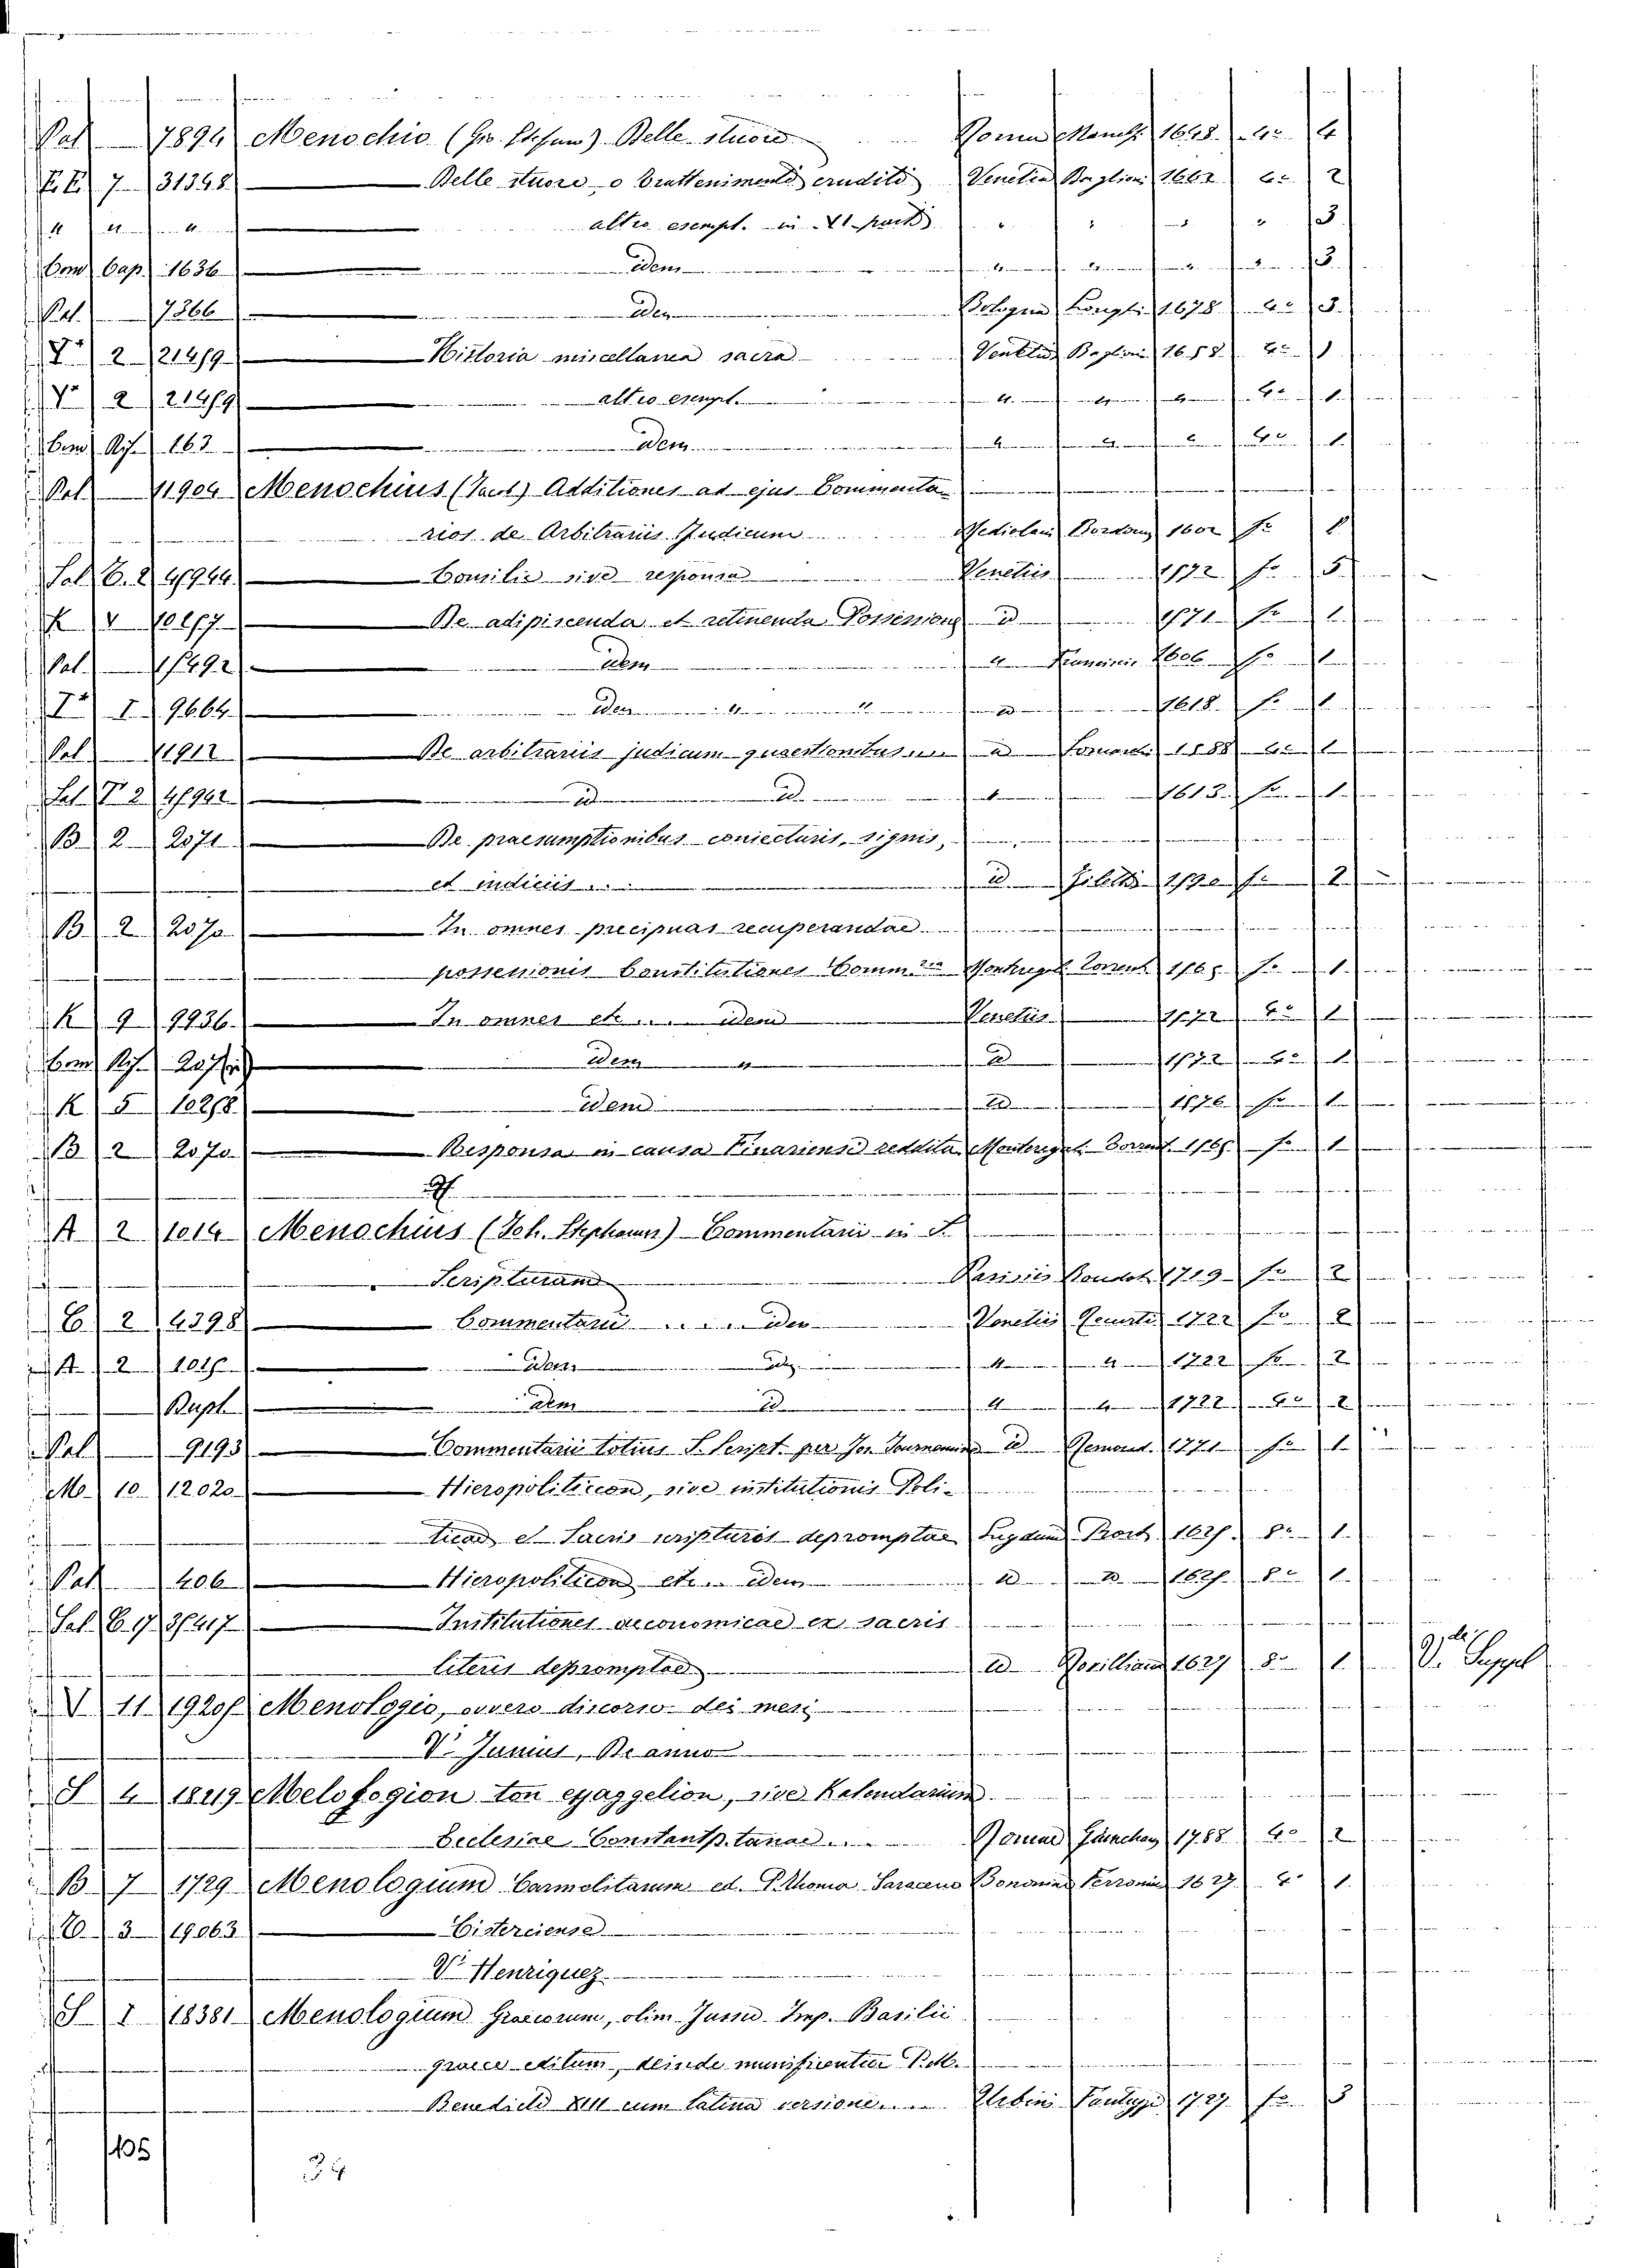 Pal 7894 Menochio (Gio. Stefano) Delle stuore Roma Manelfi 1648. 4o 4
7 31348 Delle stuore o trattenimenti eruditi Venetia Baglioni 1662 4o 2
" " " altro esempl. in VI parti " " " " 3
Com Cap. 1636 idem " " " " 3
Pal. 7366 idem Bologna Longhi 1678 4o 3
2 21419 Historia miscellanea sacra Venetiis Baglioni 1658 4o 1
2 21419 altro esempl. " " " 4o 1
Com Rif. 163 idem " " " 4o 1
Pal 11904 Menochius (Jacob) Additiones ad ejus Commenta
rios de Arbitrariis Judicum Mediolani Bordon 1602 fo 1
Sal. C. 2 41944 Consilia sive responsa Venetiis 1572 fo 5
K V 10457 De adipiscenda et retinenda Possessione id 1571 fo 1
Pal. 15492 idem " Francinis 1606 fo 1
I 9664 idem " " id 1618 fo 1
Pal 11912 De arbitrariis judicum quaestionibus id 1588 4o 1
Sal. 2 41942 id id " 1613 fo 1
B 2 2071 De praesumptionibus coniecturis, signis,
et indiciis .... id Ziletti 1590 fo 2
B 2 2070 In omnes precipuas recuperandae
possessionis Constitutiones Comm.us Torrent 1565 fo 1
K 9 9936 In omnes etc .... idem Venetiis 1572 4o 1
Com Rif. idem " id 1572 4o 1
K 5 10258 idem id 1576 fo 1
B 2 2070 Responsa in causa Finariensi reddita Torrent. 1565 fo 1
A 2 1014 Menochius (Joh. Stephanus) Commentarii in S.
Scripturam Parisiis Coudot 1719 fo 2
C 2 4398 Commentarii .... idem Venetiis Recurti 1722 fo 2
A 2 1015 idem id. " " 1722 fo 2
Dupl. idem id " " 1722 4o 2
Pal 9193 Commentarii totius S. Script. per Jos. Tournemine id Remond. 1771 fo 1
M 10 12020 Hieropoliticon, sive institutionis Poli-
ticae e Sacris scripturis depromptae Lugduni Prost 1625 8o 1
Pal 406 Hieropoliticon etc... idem id id 1625 8o 1
Sal. C. 17 35417 Institutiones aeconomicae ex sacris
literis depromptae id Rovilliana 1627 8o 1 Vedi Suppl
V 11 19205 Menologio, ovvero discorso dei mesi
V. Junius, De anno
S 4 18419 Melofogion ton eyaggelion, sive Kalendarium
Ecclesiae Constantp.tanae .... Romae 1788 4o 2
B 7 1729 Menologium Carmelitarum ed. P. Thoma Saraceno Bononiae Ferronii 1627 4o 1
3 19063 Cisterciense
V. Henriquez
S I 18381 Menologium Graecorum, olim Jussu Imp. Basilii
graece editum, deinde munificentia P.M.
Benedicti XIII cum latina versione .... Urbini Fantuzzi 1727 fo 3
135
34